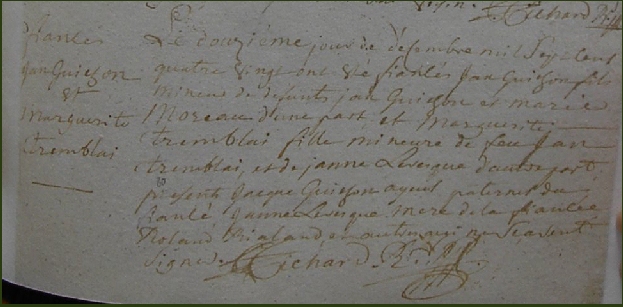 Richard
fiancés
jan Guieson
et
Marguerite
tremblai
Le douzième jour de désembre mil sept cent
quatre vingt ont été fiancés jan Guieson fils
mineur de defunts jan Guieson et marie
Moreau d'une part et Marguerite
tremblai fille mineure de feu jan
tremblai, et de janne Levesque d'autre part
présents jacque Guieson ayeul paternel du
fiancé jannne Levesque mere de la fiancée
Roland
signer Richard